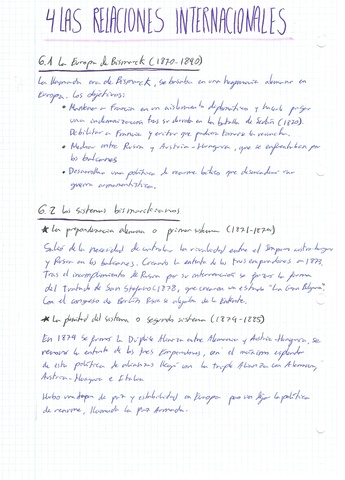 4 LAS RELACIONES INTERNACIONALES
6.1 La Europa de Bismarck (1870-1890)
La llamada era de Bismarck, se basaba en una hegemonía alemana en
Europa. Los objetivos:
• Mantener a Francia en un aislamiento diplomático y hacerle pagar
una indemnización tras su derrota en la batalla de Sedán (1870).
Debilitar a Francia y evitar que pudiera tomarse la revancha.
• Mediar entre Rusia y Austria-Hungría, que se enfrentaban por
los balcanes.
• Desarrollar una política de rearme bélico que desencadenó una
guerra armamentística.
6.2 Los sistemas bismarckianos
* La preponderancia alemana o primer sistema (1871-1878)
Salió de la necesidad de controlar la rivalidad entre el Imperio austro-húngaro
y Rusia en los balcanes. Creando la entente de los tres emperadores en 1873.
Tras el incumplimiento de Rusia por su intervención se forzó la firma
del Tratado de San Stefano (1878, que creaban un estado "La Gran Bulgaria".
Con el congreso de Berlín Rusia se alejaba de la Entente.
* La plenitud del sistema o segundo sistema (1879-1885)
En 1879 se formó la Dúplice Alianza entre Alemania y Austria-Hungría, se
renovó la entente de los tres Emperadores, en el máximo esplendor
de esta política de alianzas llegó con la Triple Alianza con Alemania,
Austria-Hungría e Italia.
Hubo una etapa de paz y estabilidad en Europa pero sin dejar la política
de rearme, llamando la Paz Armada.